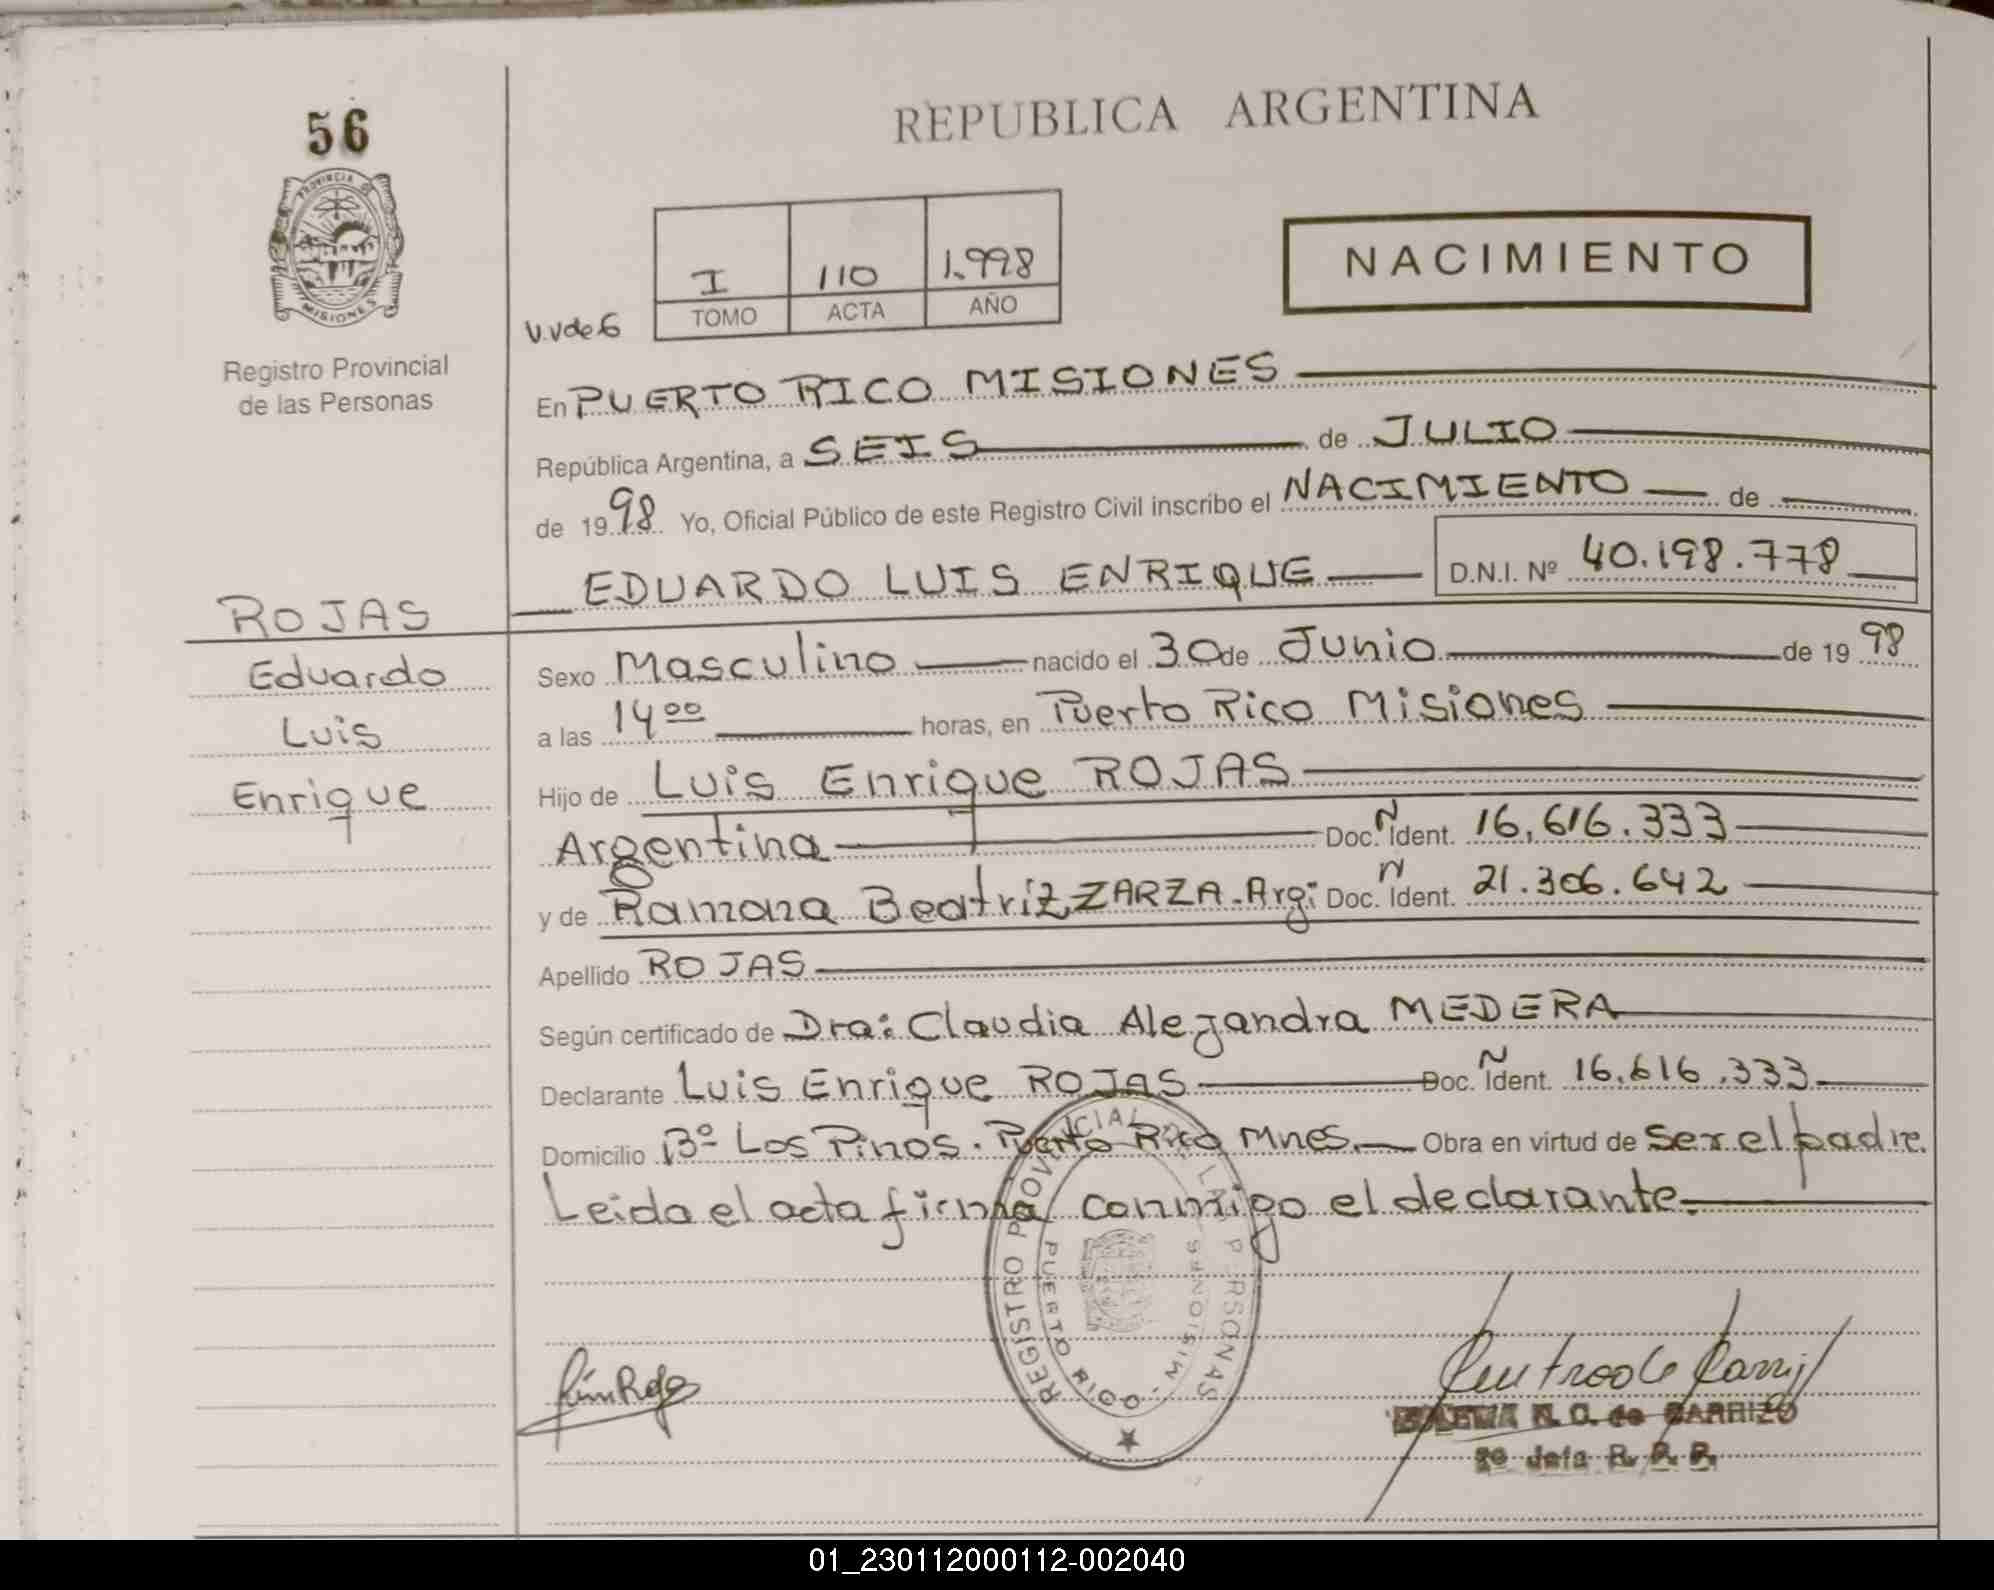 56
REPUBLICA ARGENTINA
PROVINCIA DE
MISIONES
Registro Provincial
de las Personas
NACIMIENTO
I 110 1.998
TOMO ACTA AÑO
V.Vde G
En PUERTO RICO MISIONES
República Argentina, a SEIS de JULIO
de 1998. Yo, Oficial Público de este Registro Civil inscribo el NACIMIENTO de
EDUARDO LUIS ENRIQUE D.N.I. Nº 40.198.778
ROJAS
Eduardo
Luis
Enrique
Sexo Masculino nacido el 30 de Junio de 1998
a las 14 00 horas, en Puerto Rico Misiones
Hijo de Luis Enrique ROJAS
Argentina Doc. N Ident. 16.616.333
y de Ramona Beatriz ZARZA. Arg: Doc. N Ident. 21.306.642
Apellido ROJAS
Según certificado de Dra: Claudia Alejandra MEDERA
Declarante Luis Enrique ROJAS Doc. N Ident. 16.616.333
Domicilio Bº Los Pinos. Puerto Rico Mnes. Obra en virtud de Ser el padre.
Leida el acta firma conmigo el declarante.
REGISTRO PROVINCIAL DE LAS PERSONAS
PUERTO RICO - MISIONES
N. C. de CARRIZO
2º Jefa R. P. P.
01_230112000112-002040